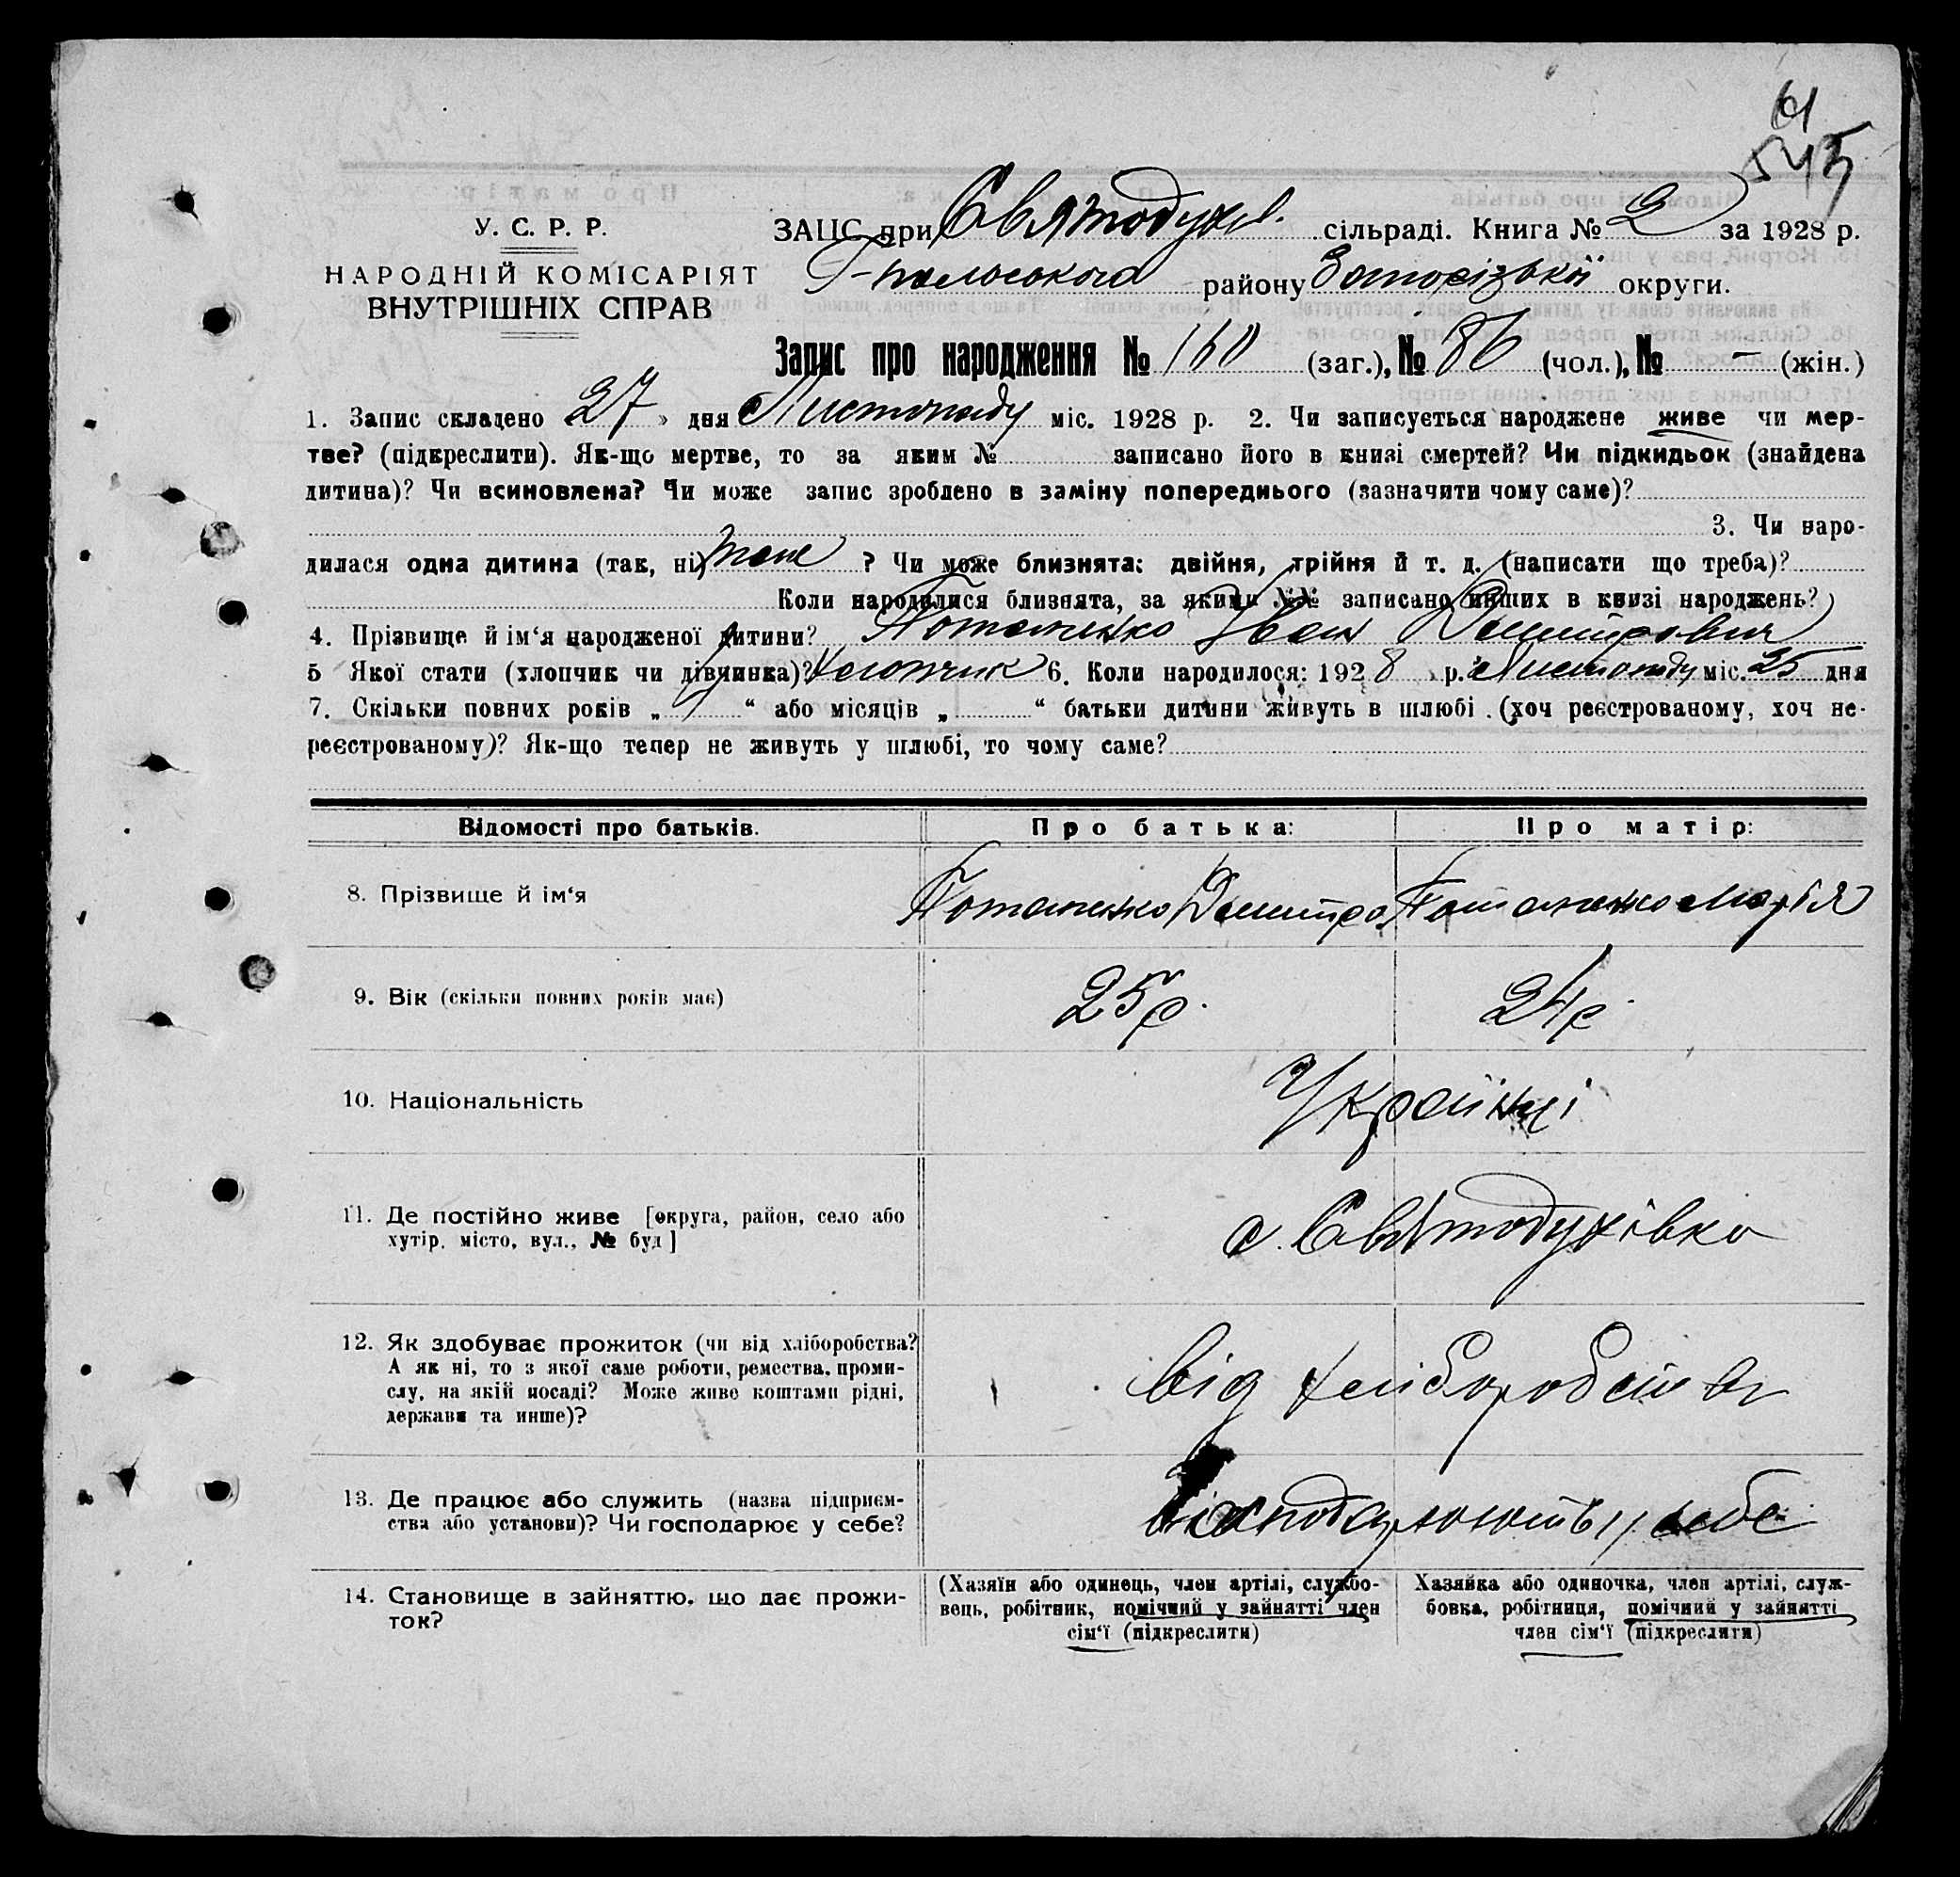 61
545
У. С. Р. Р.
НАРОДНІЙ КОМІСАРІЯТ
ВНУТРІШНІХ СПРАВ
ЗАЦС при Святодухів. сільраді. Книга № 2 за 1928 р.
Г-польського району Запорізької округи.
Запис про народження № 160 (заг.), № 86 (чол.), № – (жін.)
1. Запис складено 27 » дня Листопаду міс. 1928 р. 2. Чи записується народжене живе чи мер-
тве? (підкреслити). Як-що мертве, то за яким № записано його в книзі смертей? Чи підкидьок (знайдена
дитина)? Чи всиновлена? Чи може запис зроблено в заміну попереднього (зазначити чому саме)?
3. Чи наро-
дилася одна дитина (так, ні) так ? Чи може близнята: двійня, трійня й т. д. (написати що треба)?
Коли народилися близнята, за якими №№ записано инших в книзі народжень?
4. Прізвище й ім‘я народженої дитини? Потапенко Іван Дмитрович
5 Якої стати (хлопчик чи дівчинка)? Хлопчик 6. Коли народилося: 1928 р. Листопаду міс. 25 дня
7. Скільки повних років „ 1 “ або місяців „ “ батьки дитини живуть в шлюбі (хоч реєстрованому, хоч не-
реєстрованому)? Як-що тепер не живуть у шлюбі, то чому саме?
Відомості про батьків. Про батька: Про матір:
8. Прізвище й ім‘я Потапенко Дмитро Потапенко Марія
9. Вік (скільки повних років має) 25 р. 24 р.
10. Національність Українці
11. Де постійно живе [округа, район, село або
хутір, місто, вул., № буд] с. Святодухівка
12. Як здобуває прожиток (чи від хліборобства?
А як ні, то з якої саме роботи, ремества, проми-
слу, на якій посаді? Може живе коштами рідні,
держави та инше)? від хліборобства
13. Де працює або служить (назва підприєм-
ства або установи)? Чи господарює у себе? господарюють у себе
14. Становище в зайняттю, що дає прожи-
ток?
(Хазяїн або одинець, член артілі, службо-
вець, робітник, помічний у зайнятті член
сім‘ї (підкреслити)
Хазяйка або одиночка, член артілі, служ-
бовка, робітниця, помічний у зайнятті
член сім‘ї (підкреслити)